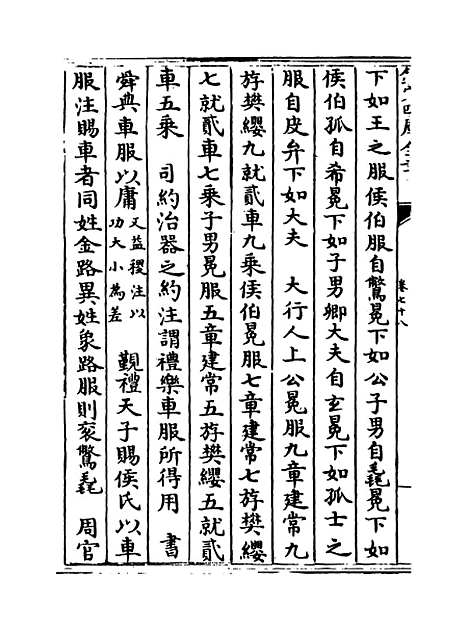 下如王之服侯伯服自鷩冕下如公子男自毳冕下如
侯伯孤自希冕下如子男卿大夫自玄冕下如孤士之
服自皮弁下如大夫　大行人上公冕服九章建常九
斿樊纓九就貳車九乘侯伯冕服七章建常七斿樊纓
七就貳車七乘子男冕服五章建常五斿樊纓五就貳
車五乘　司約治器之約注謂禮樂車服所得用　書
舜典車服以庸又益稷注以功大小為差　覲禮天子賜侯氏以車
服注賜車者同姓金路異姓象路服則衮鷩毳　周官
卷七十八